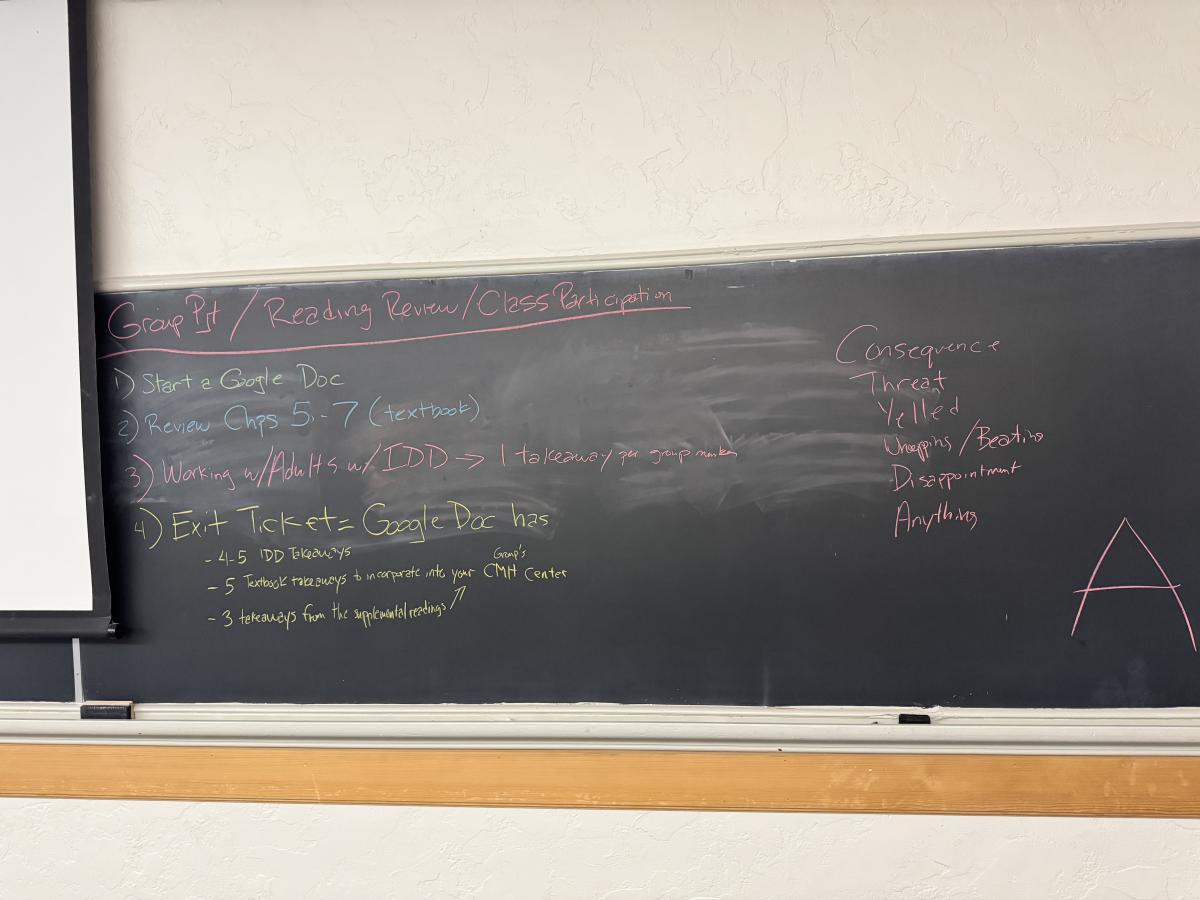 Group Pjt / Reading Review / Class Participation
1) Start a Google Doc
2) Review Chps 5-7 (textbook)
3) Working w/Adults w/IDD → 1 takeaway per group member
4) Exit Ticket = Google Doc has
- 4-5 IDD Takeaways
- 5 Textbook takeaways to incorporate into your Group's CMH Center
- 3 takeaways from the supplemental readings
Consequence
Threat
Yelled
Whoopins / Beating
Disappointment
Anything
A